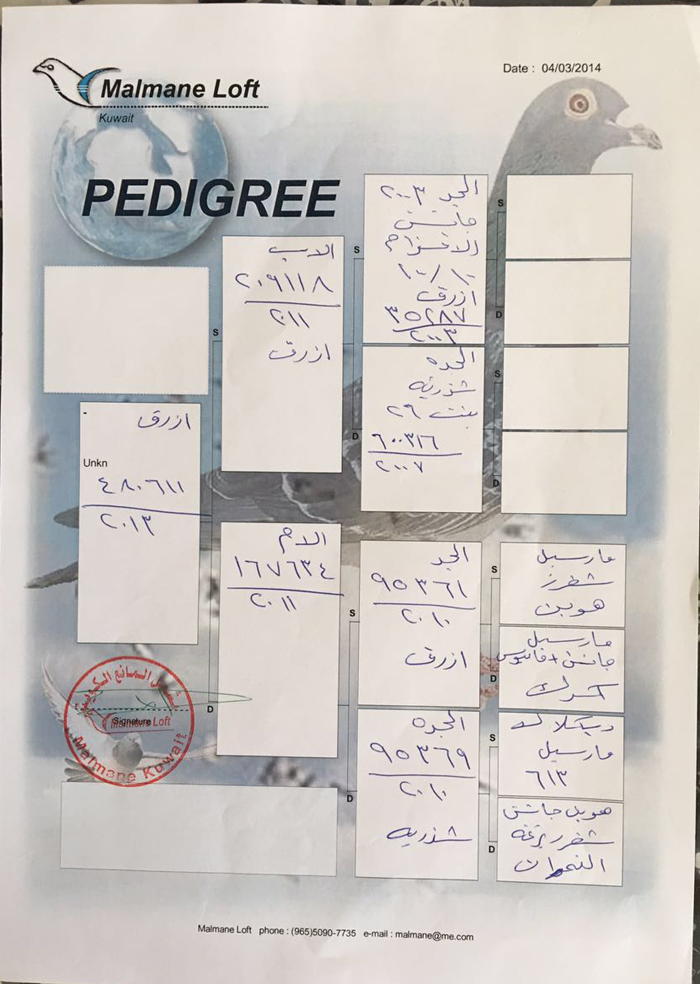 Date : 04/03/2014
Malmane Loft
Kuwait
PEDIGREE
ازرق
Unkn
٤٨٠٦١١
٢٠١٣
S
الاب
٢٠٩١١٨
٢٠١١
ازرق
D
الام
١٦٧٦٣٤
٢٠١١
S
الجد ٢٠٠٣
جانسن
١٠٠/١٠
ازرق
٣٥٢٨٧
٢٠٠٣
D
الجده
شذريه
بنت ٢٦
٦٠٠٣١٦
٢٠٠٧
S
الجد
٩٥٣٦١
٢٠١٠
ازرق
D
الجده
٩٥٣٦٩
٢٠١٠
شذريه
S
D
S
D
S
مارسيل
هوبن
D
مارسيل
جانسن + فانبوس
S
ديكلاك
مارسيل
٦١٣
D
هوبن جانسن
Signature
Malmane Loft
Malmane Kuwait
Malmane Loft phone : (965)5090-7735 e-mail : malmane@me.com